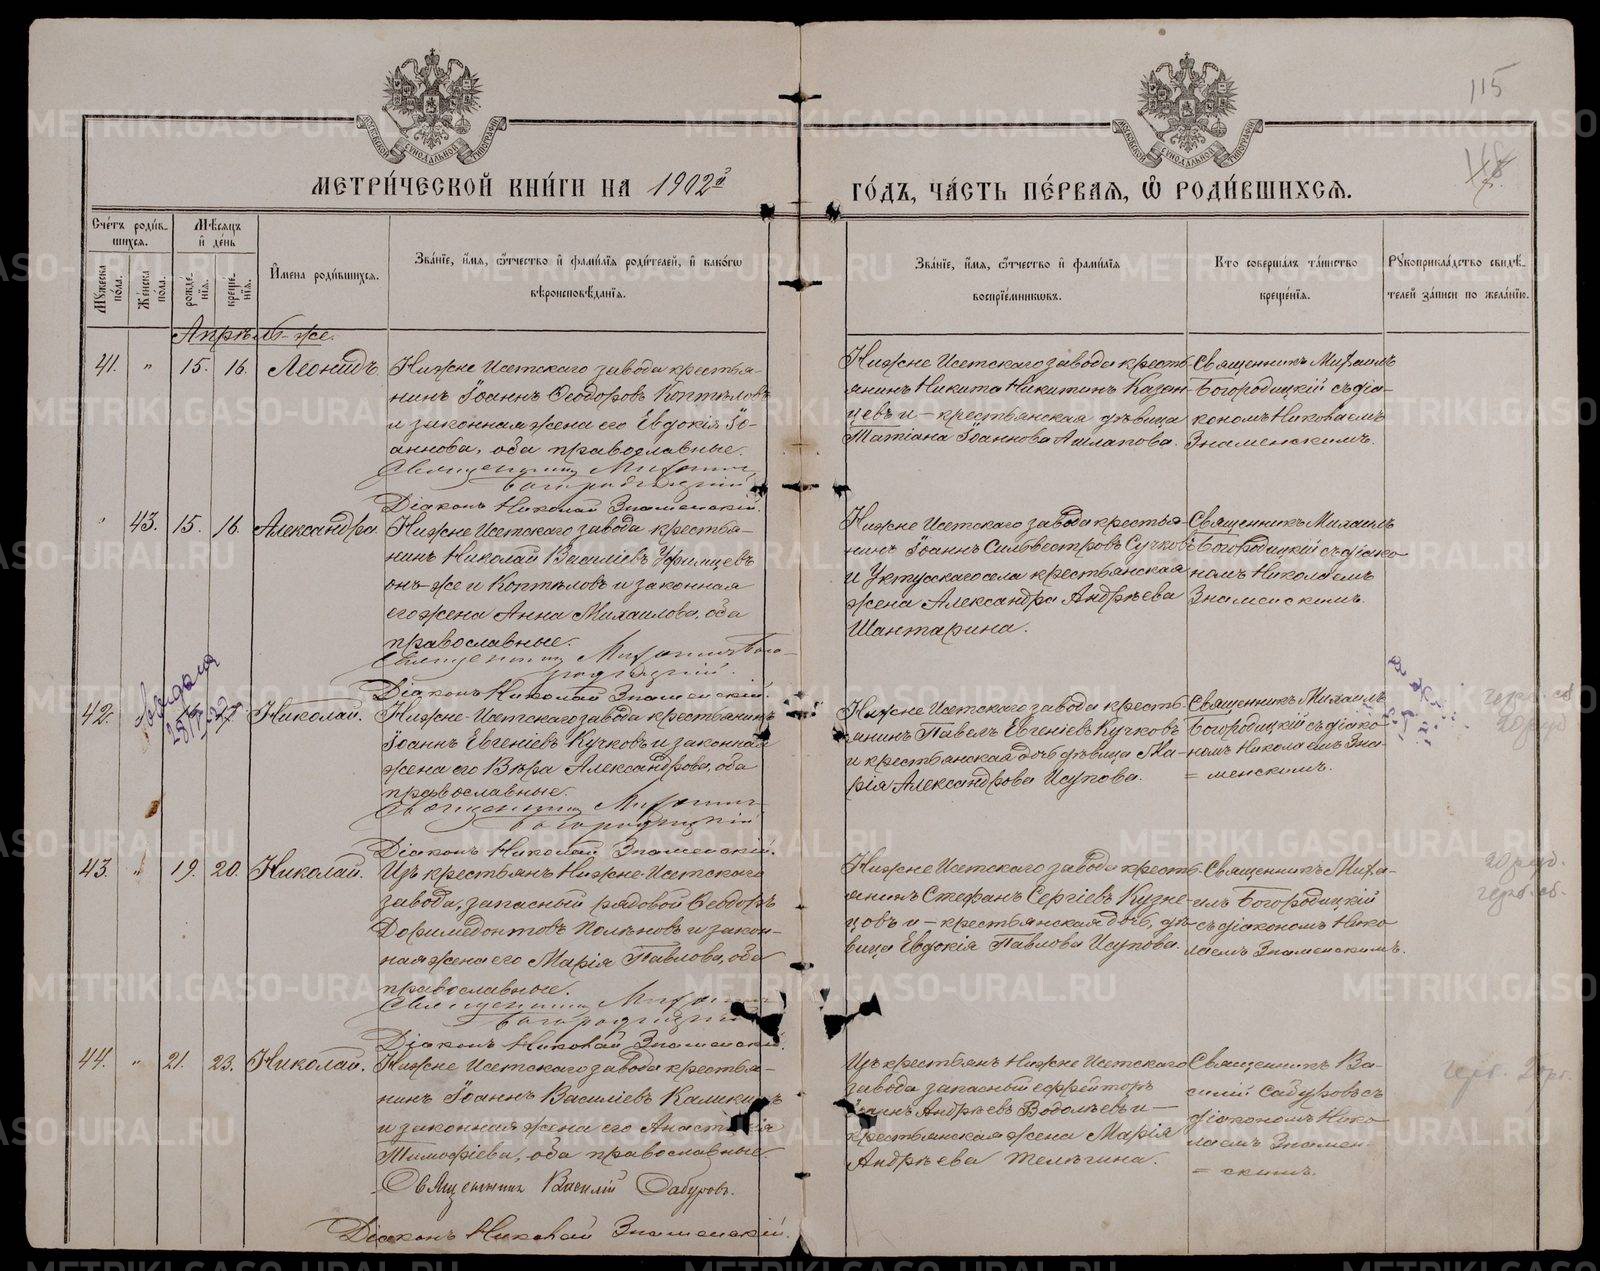 115
МЕТРИ́ЧЕСКОЙ КНИ́ГИ НА 1902й
ГО́ДЪ, ЧА́СТЬ ПЕ́РВАЯ, Ѿ РОДИ́ВШИХСЯ.
Сче́тъ роди́в-
шихся.
Мѣ́сяцъ
и҆ де́нь
Му́жеска по́ла.
Же́нска по́ла.
рожде́-
нїя.
креще́-
нїя.
И҆мена роди́вшихся.
Зва́нїе, и҆́мя, ѻ҆́тчество и҆ фами́лїя роди́телей, и҆ како́гѡ
вѣроисповѣ́данїя.
Зва́нїе, и҆́мя, ѻ҆́тчество и҆ фами́лїя
воспрїе́мниковъ.
Кто соверша́лъ та́инство
креще́нїя.
Рꙋкоприкла́дство свидѣ́-
телей за́писи по жела́нїю.
Апрѣль-же.
41. " 15. 16. Леонидъ.
Нижне Исетскаго завода крестья-
нинъ Іоаннъ Ѳеодоровъ Коптѣловъ
и законная жена его Евдокія Іо-
аннова, оба православные.
Священникъ Михаилъ
Богородицкій
Діаконъ Николай Знаменскій.
Нижне Исетскаго завода кресть-
янинъ Никита Никитинъ Казан-
цевъ и - крестьянская дѣвица
Татіана Іоаннова Ашлапова.
Священникъ Михаилъ
Богородицкій съ діа-
кономъ Николаемъ
Знаменскимъ.
" 43. 15. 16. Александра.
Нижне Исетскаго завода крестья-
нинъ Николай Василіевъ Уфимцевъ
онъ-же и Коптѣловъ и законная
его жена Анна Михаилова, оба
православные.
Священникъ Михаилъ Бого-
родицкій.
Діаконъ Николай Знаменскій.
Нижне Исетскаго завода крестья-
нинъ Іоаннъ Сильвестровъ Сучковъ
и Уктусскаго села крестьянская
жена Александра Андрѣева
Шантарина.
Священникъ Михаилъ
Богородицкій съ діако-
номъ Николаемъ
Знаменскимъ.
42. Николай.
Нижне-Исетскаго завода крестьянинъ
Іоаннъ Евгеніевъ Кучковъ и законная
жена его Вѣра Александрова, оба
православные.
Священникъ Михаилъ
Богородицкій
Діаконъ Николай Знаменскій.
Нижне Исетскаго завода кресть-
янинъ Павелъ Евгеніевъ Кучковъ
и крестьянская дочь дѣвица Ма-
рія Александрова Исупова.
Священникъ Михаилъ
Богородицкій съ діако-
номъ Николаемъ Зна-
= менскимъ.
43. " 19. 20. Николай.
Изъ крестьянъ Нижне-Исетскаго
завода, запасный рядовой Ѳеодоръ
Доримедонтовъ Полѣновъ и закон-
ная жена его Марія Павлова, оба
православные.
Священникъ Михаилъ
Богородицкій
Діаконъ Николай Знаменскій.
Нижне Исетскаго завода кресть-
янинъ Стефанъ Сергіевъ Кузне-
цовъ и - крестьянская дочь, дѣ-
вица Евдокія Павлова Исупова.
Священникъ Миха-
илъ Богородицкій
съ діакономъ Нико-
лаемъ Знаменскимъ.
44. " 21. 23. Николай.
Нижне Исетскаго завода крестья-
нинъ Іоаннъ Василіевъ Каликинъ
и законная жена его Анастасія
Тимофіева, оба православные.
Священникъ Василій Сабуровъ.
Діаконъ Николай Знаменскій.
Изъ крестьянъ Нижне Исетскаго
завода запасный ефрейторъ
Іоаннъ Андрѣевъ Водолѣевъ и -
крестьянская жена Марія
Андрѣева Телѣгина.
Священникъ Ва-
силій Сабуровъ съ
діакономъ Нико-
лаемъ Знамен-
= скимъ.
METRIKI.GASO-URAL.RU